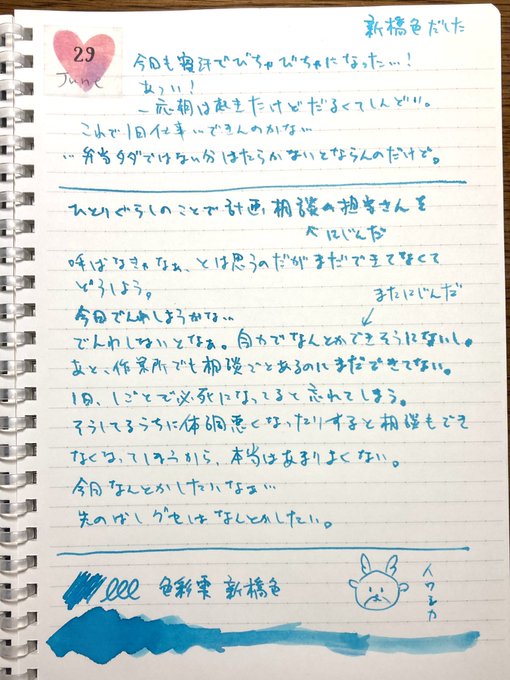 新橋色だした
29
June
今日も寝汗でびちゃびちゃになった…!
あっつい!
一応朝は起きたけどだるくてしんどい。
これで1日仕事…できんのかな…
…弁当タダではない分はたらかないとならんのだけど。
ひとりぐらしのことで計画相談の担当さんを
にじんだ
呼ばなきゃなぁ、とは思うのだがまだできてなくて
どうしよう。
またにじんだ
今日でんわしようかな…
でんわしないとなぁ。自力でなんとかできそうにないし。
あと、作業所でも相談ごとあるのにまだできてない。
1日、しごとで必死になってると忘れてしまう。
そうしてるうちに体調悪くなったりすると相談もでき
なくなってしまうから、本当はあまりよくない。
今日なんとかしたいなぁ…
先のばしグセはなんとかしたい。
色彩雫 新橋色
イワシカ